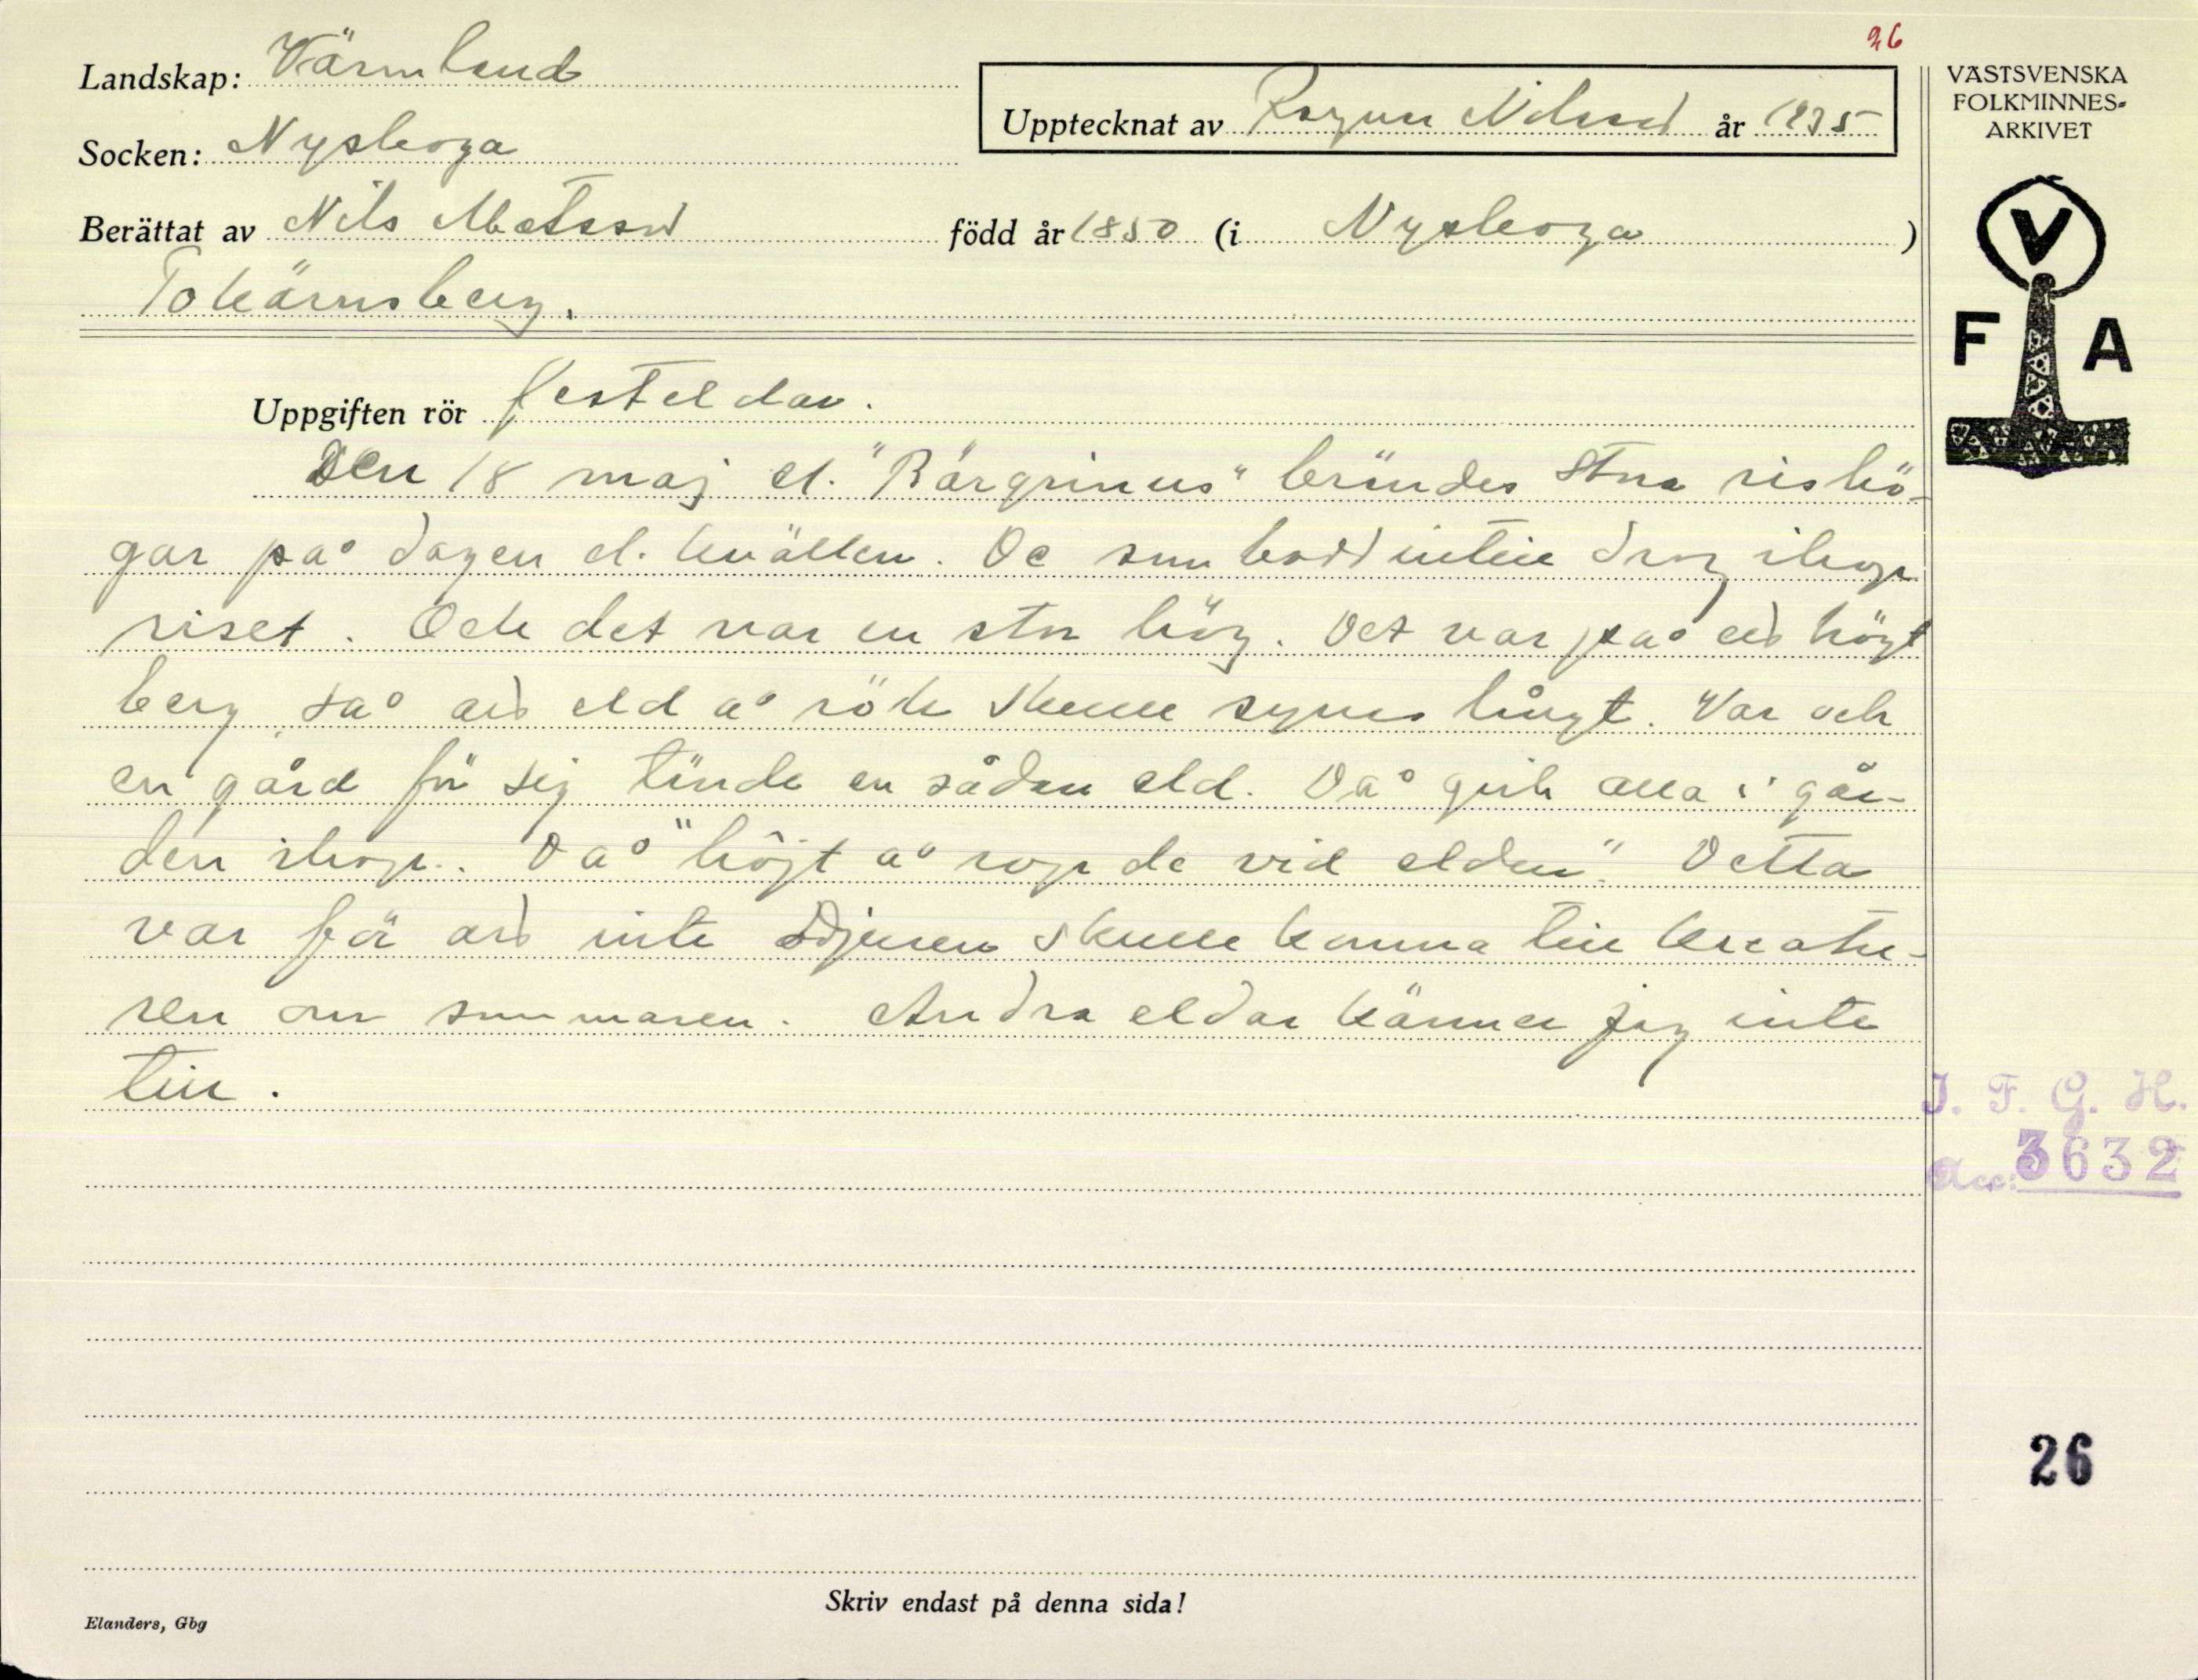 26
Landskap: Värmland
Upptecknat av Ragnar Nilsson år 1935
VÄSTSVENSKA
FOLKMINNES-
ARKIVET
Socken: Nyskoga
Berättat av Nils Matsson född år 1850 (i Nyskoga )
V
F A
Uppgiften rör festeldar.
Den 18 maj el. "Bärgrinus" brändes stora rishö-
gar på dagen el. kvällen. De som hörd intill drog ihop
riset. Och det var en stor hög. Det var på ett högt
berg, så att eld å rök skulle synas långt. Var och
en gård för sig tände en sådan eld. Då gick alla i går-
den ihop. Då "höjt å rop de vid elden". Detta
var för att inte djuren skulle komma till kreatu-
ren om sommaren. Andra eldar känner jag inte
till.
I. F. G. H.
Acc: 3632
26
Skriv endast på denna sida!
Elanders, Gbg